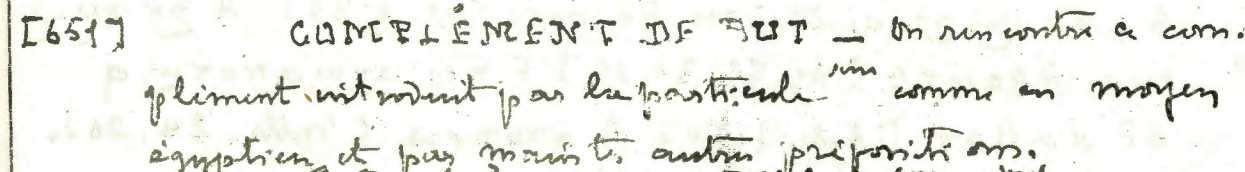 [651] COMPLÉMENT DE BUT — On rencontre ce com-
plément introduit par la particule comme en moyen
égyptien et par maintes autres prépositions.